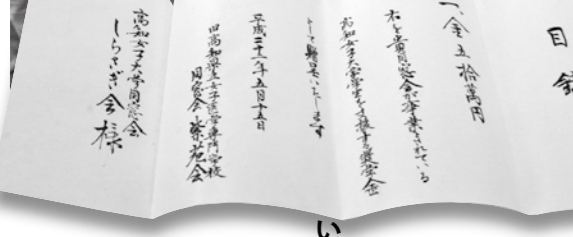 目録
一、金五拾萬円
右を貴同窓会が企業とされている
高知女子大学学生を支援する奨学金
として贈呈いたします
平成二十二年五月十五日
旧高知県立女子医学専門学校
同窓会 紫苑会
高知女子大学同窓会
しらさぎ会様
い